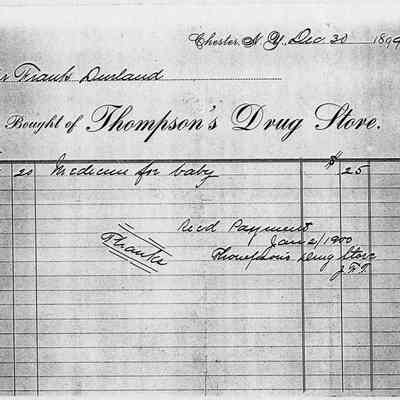 Chester, N.Y., Dec 30 1899
Mr Frank Durland
Bought of Thompson's Drug Store.
20 Medicine for baby $ 25
Recd Payment
Jan 2/1900
Thanks
Thompson's Drug Store